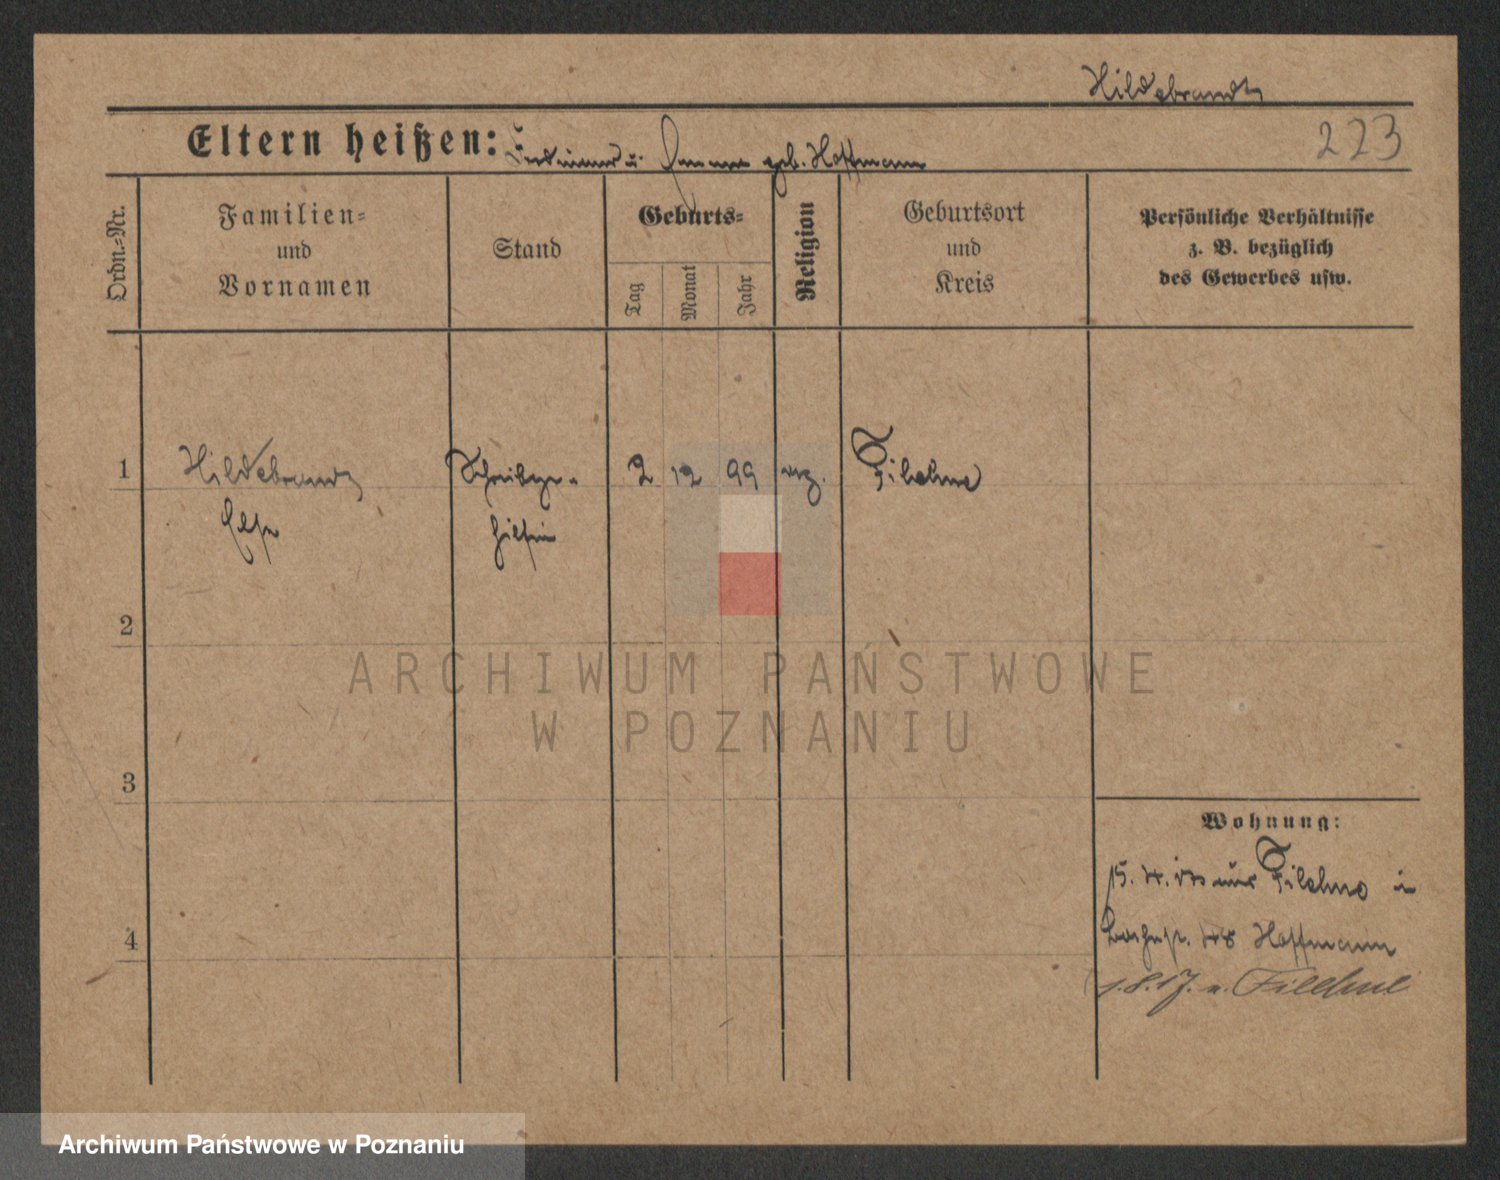 Hildebrandt
Eltern heißen: Ferdinand u. Emma geb. Hoffmann
223
Ordn.-Nr.
Familien-
und
Vornamen
Stand
Geburts-
Tag
Monat
Jahr
Religion
Geburtsort
und
Kreis
Persönliche Verhältnisse
z. B. bezüglich
des Gewerbes usw.
1 Hildebrandt Schreibge- 2 12 99 evg. Filehne
Else hilfin
2
3
4
ARCHIWUM PAŃSTWOWE
W POZNANIU
Wohnung:
15. 4. aus Filehne in
Hoffmann
1.8.17. n. Filehne
Archiwum Państwowe w Poznaniu